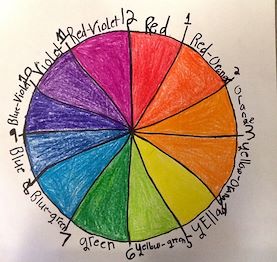 12
Red
1
Red-Orange
2
Orange
3
Yellow-Orange
4
YEllow
5
Yellow-green
6
green
7
Blue-green
8
Blue
9
Blue-Violet
10
Violet
11
Red-Violet